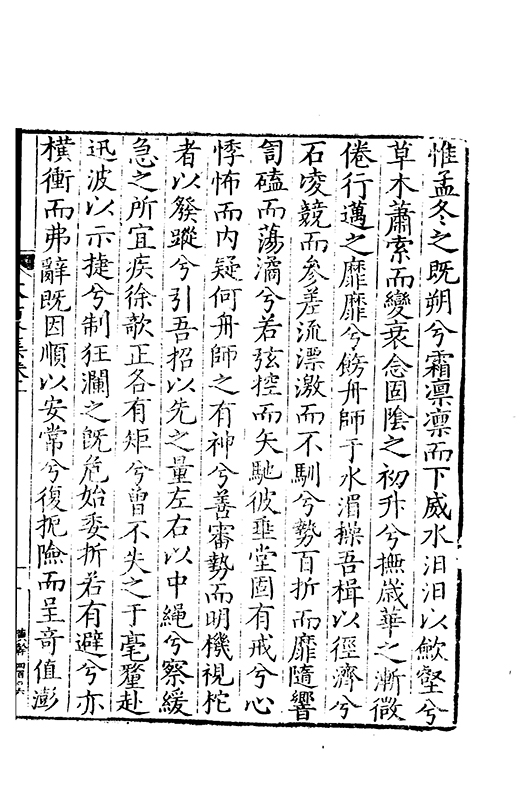 惟孟冬之既朔兮霜凛凛而下威水汨汨以歛壑兮
草木蕭索而變衰念固陰之初升兮撫歲華之漸微
倦行邁之靡靡兮傚舟師于水湄操吾楫以徑濟兮
石凌競而參差流漂激而不馴兮勢百折而靡隨響
訇磕而蕩潏兮若弦控而矢馳彼垂堂固有戒兮心
悸怖而内疑何舟師之有神兮善審勢而明機視柁
者以發蹤兮引吾招以先之量左右以中繩兮察緩
急之所宜疾徐欹正各有矩兮曾不失之于毫釐赴
迅波以示捷兮制狂瀾之既危始委折若有避兮亦
横衝而弗辭既因順以安常兮復扼險而呈奇值澎